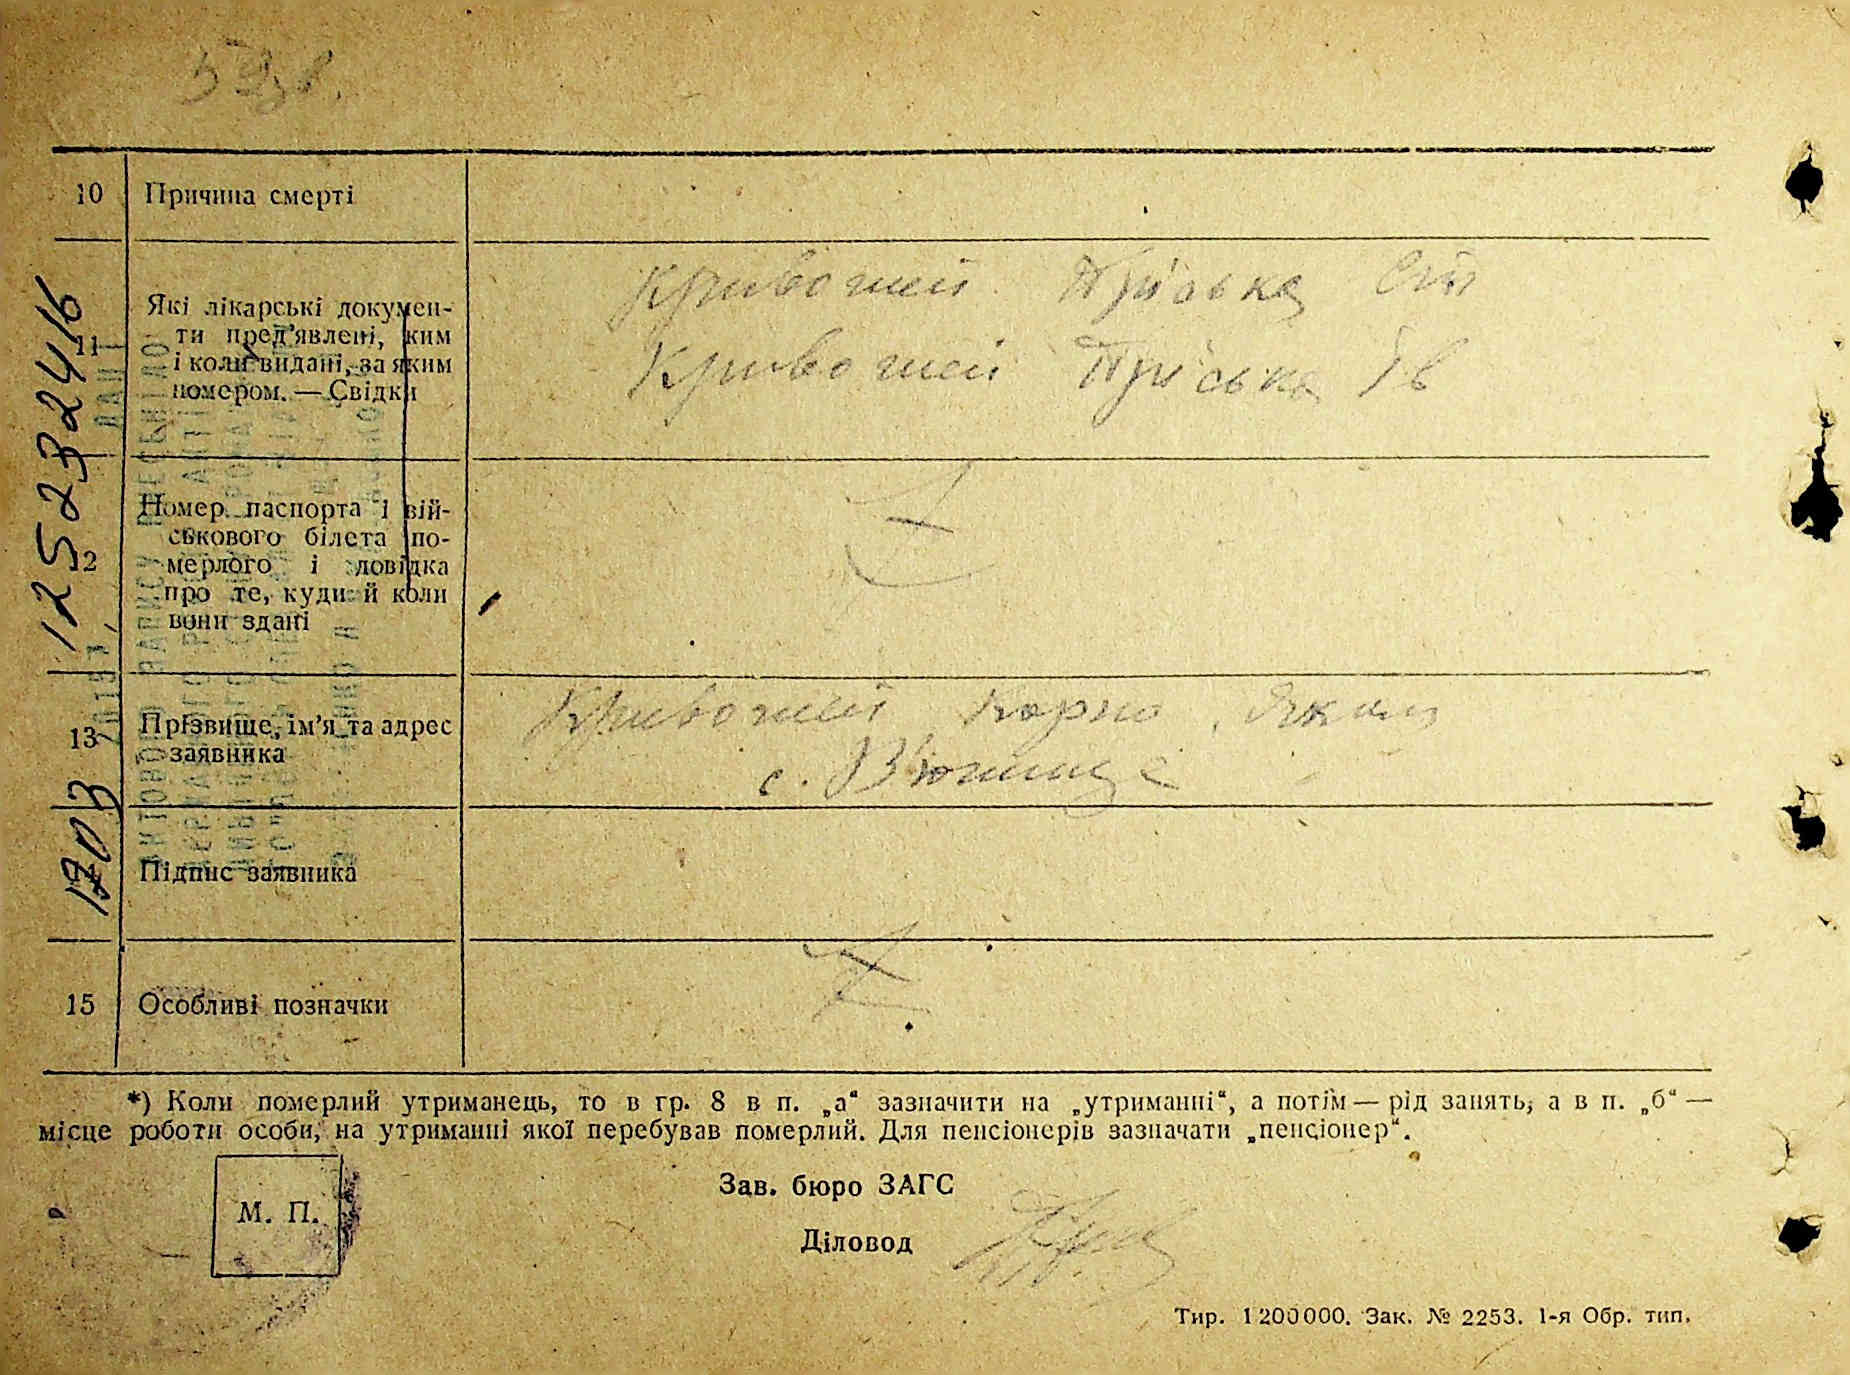 10 Причина смерті
Які лікарські докумен-
ти пред'явлені, ким
11
і коли видані, за яким
номером. — Свідки
Кривошей Пріська
Кривошей Пріська Ів
Номер паспорта і вій-
ськового білета по-
мерлого і довідка
про те, куди й коли
вони здані
13 Прізвище, ім'я та адрес
заявника
Кривошей Карпо Яким
с. В'юнище
Підпис заявника
15 Особливі позначки
*) Коли померлий утриманець, то в гр. 8 в п. „а“ зазначити на „утриманні“, а потім — рід занять, а в п. „б“ —
місце роботи особи, на утриманні якої перебував померлий. Для пенсіонерів зазначати „пенсіонер“.
М. П.
Зав. бюро ЗАГС
Діловод
Тир. 1 200 000. Зак. № 2253. 1-я Обр. тип.
12523246
1703